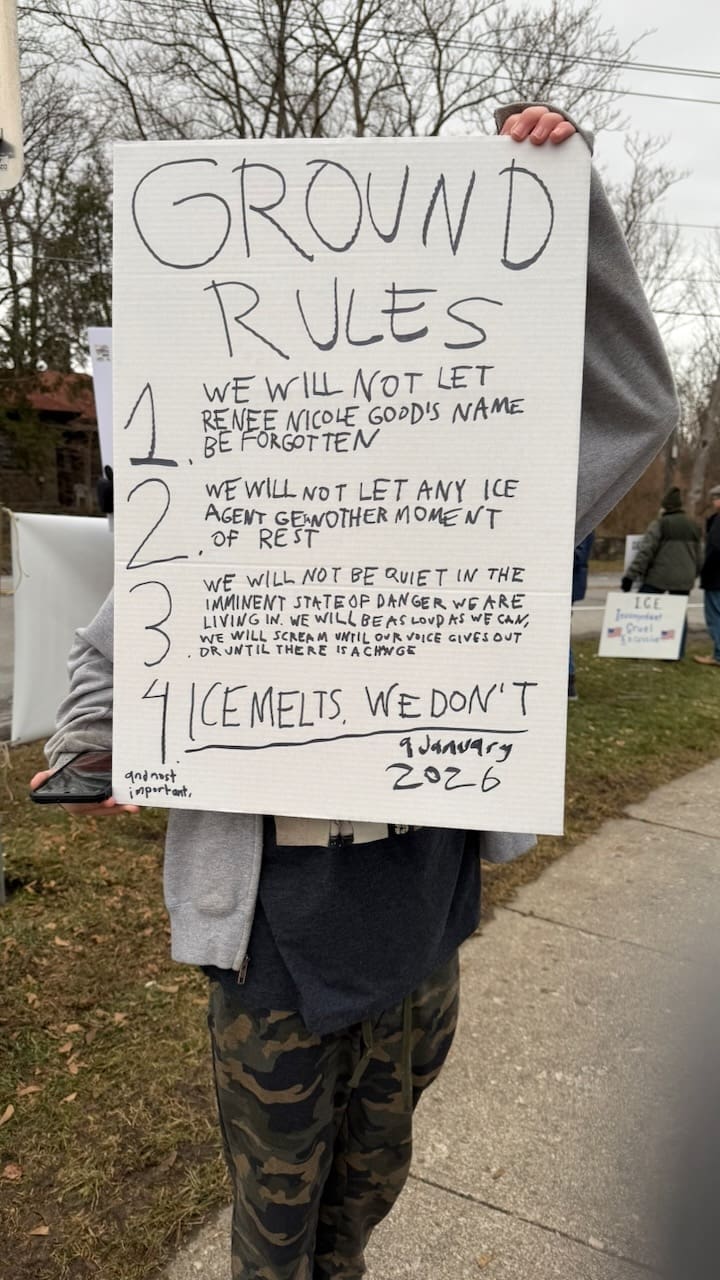 GROUND
RULES
1. WE WILL NOT LET
RENEE NICOLE GOOD'S NAME
BE FORGOTTEN
2. WE WILL NOT LET ANY ICE
AGENT GET ANOTHER MOMENT
OF REST
3. WE WILL NOT BE QUIET IN THE
IMMINENT STATE OF DANGER WE ARE
LIVING IN. WE WILL BE AS LOUD AS WE CAN,
WE WILL SCREAM UNTIL OUR VOICE GIVES OUT
OR UNTIL THERE IS A CHNGE
and most
important,
4. ICE MELTS, WE DON'T
9 January
2026
I.C.E.
Incompetent
Cruel